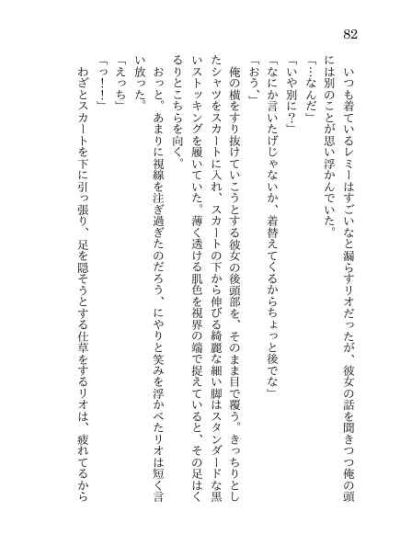 82
いつも着ているレミーはすごいなと漏らすリオだったが、彼女の話を聞きつつ俺の頭
には別のことが思い浮かんでいた。
「…なんだ」
「いや別に？」
「なにか言いたげじゃないか、着替えてくるからちょっと後でな」
「おう、」
俺の横をすり抜けていこうとする彼女の後頭部を、そのまま目で覆う。きっちりとし
たシャツをスカートに入れ、スカートの下から伸びる綺麗な細い脚はスタンダードな黒
いストッキングを履いていた。薄く透ける肌色を視界の端で捉えていると、その足はく
るりとこちらを向く。
おっと。あまりに視線を注ぎ過ぎたのだろう、にやりと笑みを浮かべたリオは短く言
い放った。
「えっち」
「っ！！」
わざとスカートを下に引っ張り、足を隠そうとする仕草をするリオは、疲れてるから